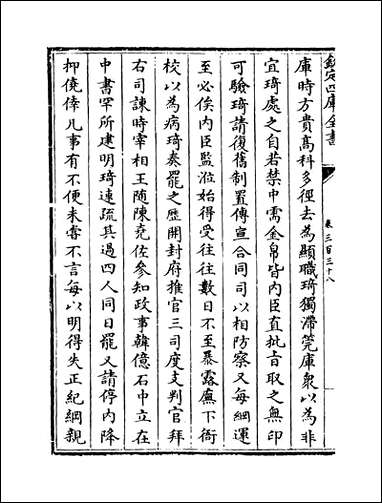 欽定四庫全書
卷三百三十八
庫時方貴高科多徑去為顯職琦獨滯筦庫衆以為非
宜琦處之自若禁中需金帛皆内臣直批㫖取之無印
可驗琦請復舊制置傳宣合同司以相防察又每綱運
至必俟内臣監涖始得受往往數日不至暴露廡下衙
校以為病琦奏罷之歴開封府推官三司度支判官拜
右司諫時宰相王随陳堯佐參知政事韓億石中立在
中書罕所建明琦連疏其過四人同日罷又請停内降
抑僥倖凡事有不便未嘗不言每以明得失正紀綱親